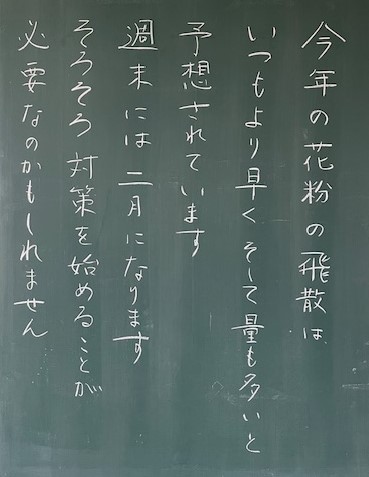 今年の花粉の飛散は
いつもより早くそして量も多いと
予想されています
週末には二月になります
そろそろ対策を始めることが
必要なのかもしれません